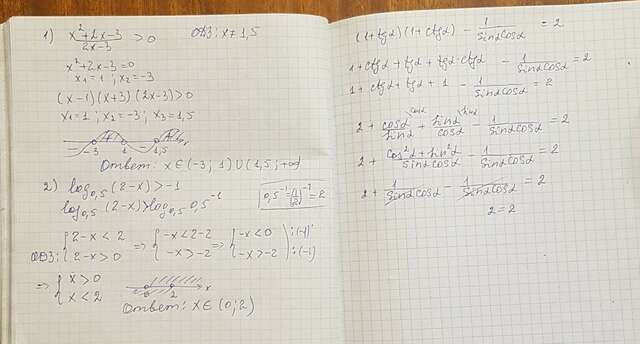 1) (x²+2x-3)/(2x-3) > 0   ОДЗ: x≠1,5
x²+2x-3=0
x₁=1 ; x₂=-3
(x-1)(x+3)(2x-3)>0
x₁=1 ; x₂=-3; x₃=1,5
-3 1 1,5 x
Ответ: x∈(-3; 1)∪(1,5; +∞)
2) log₀,₅(2-x)>-1
log₀,₅(2-x)>log₀,₅0,5⁻¹   0,5⁻¹=(1/2)⁻¹=2
ОДЗ: {2-x<2; 2-x>0 ⇒ {-x<2-2; -x>-2 ⇒ {-x<0; -x>-2 | :(-1) :(-1)
⇒ {x>0; x<2   0 2 x
Ответ: x∈(0; 2)
(1+tgα)(1+ctgα) - 1/(sinαcosα) = 2
1+ctgα+tgα+tgα·ctgα - 1/(sinαcosα) = 2
1+ctgα+tgα+1 - 1/(sinαcosα) = 2
2 + cosα/sinα^cosα + sinα/cosα^sinα - 1/(sinαcosα) = 2
2 + (cos²α+sin²α)/(sinαcosα) - 1/(sinαcosα) = 2
2 + 1/(sinαcosα) - 1/(sinαcosα) = 2
2=2